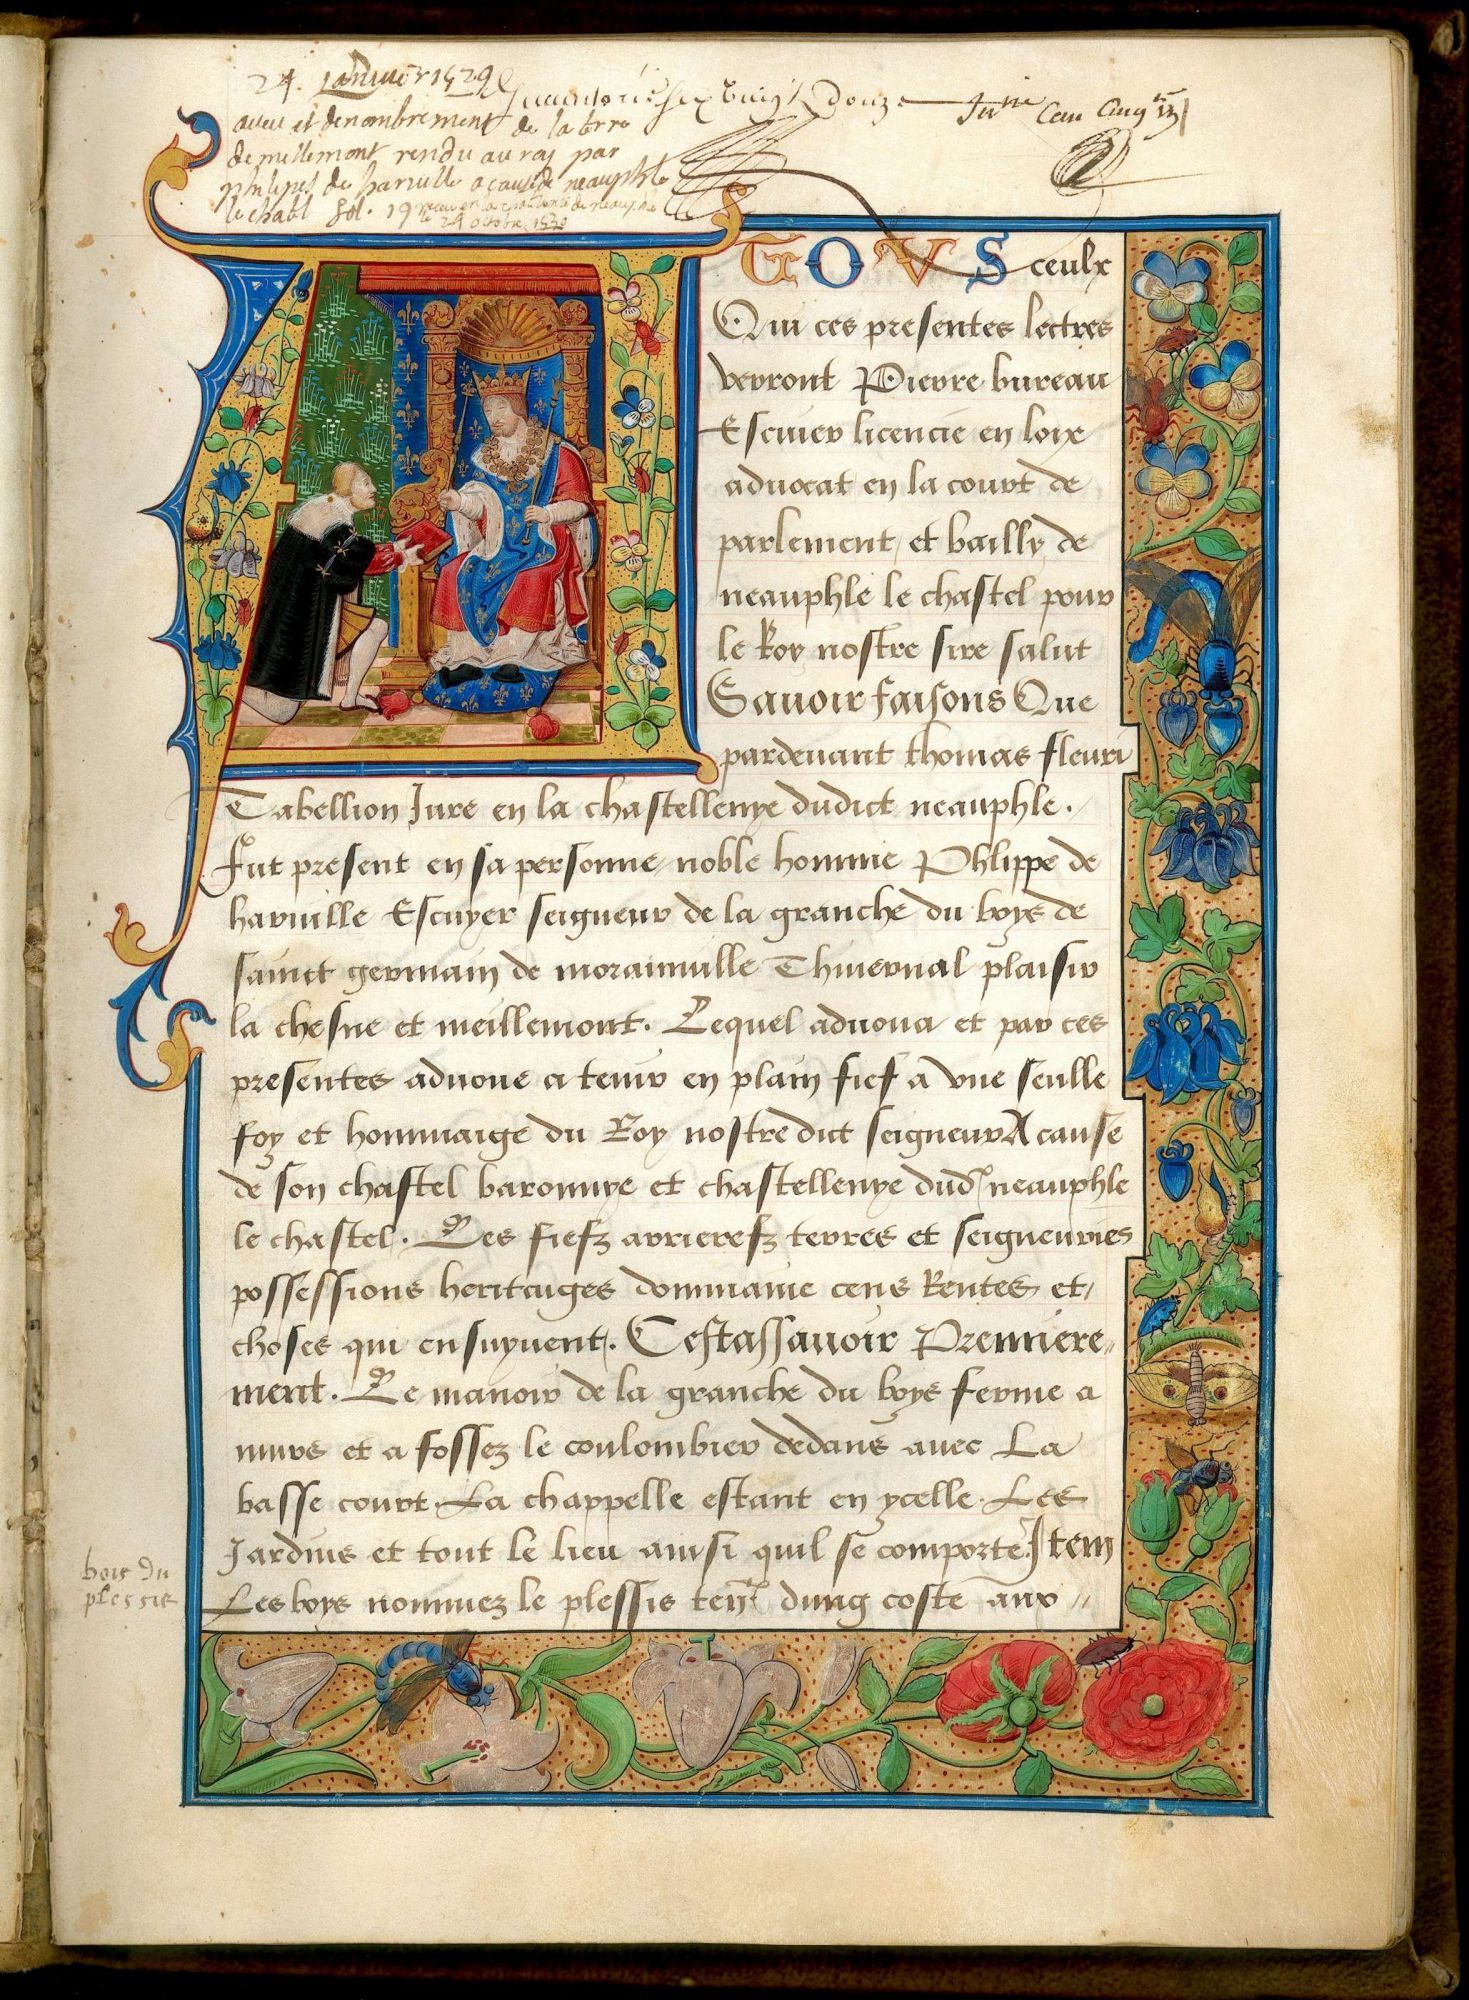 24. Januier 1529
quatorze Six vingt douze
aueu et denombrement de la terre
de millemont rendu au roy par
philipes de haruille a cause de neauphle
le chastl fol. 19
le 24 octobre 1530
A TOVS ceulx
Qui ces presentes lectres
verront Pierre bureau
Escuier licencie en loix
aduocat en la court de
parlement / et bailly de
neauphle le chastel pour
le Roy nostre sire salut
Sauoir faisons Que
pardeuant thomas fleuri
Tabellion Jure en la chastellenye dudict neauphle.
Fut present en sa personne noble homme Phlippe de
haruille Escuyer seigneur de la granche du boys de
sainct germain de morainuille Thiuernal plaisir
la chesne et meillemont. Lequel aduoua et par ces
presentes aduoue a tenir en plain fief a vne seulle
foy et hommaige du Roy nostredict seigneur A cause
de son chastel baronnye et chastellenye dud neauphle
le chastel. Les fiefz arrierefz terres et seigneuries
possessions heritaiges dommaine cens Rentes et
choses qui ensuyuent. Cestassauoir Premiere„
ment. Le manoir de la granche du boys ferme a
murs et a fossez le coulombier dedans auec La
basse court. La chappelle estant en ycelle. Les
Jardins et tout le lieu ainsi quil se comporte. Item
Les boys nommez le plessis ten dung coste aux
bois du
plessis